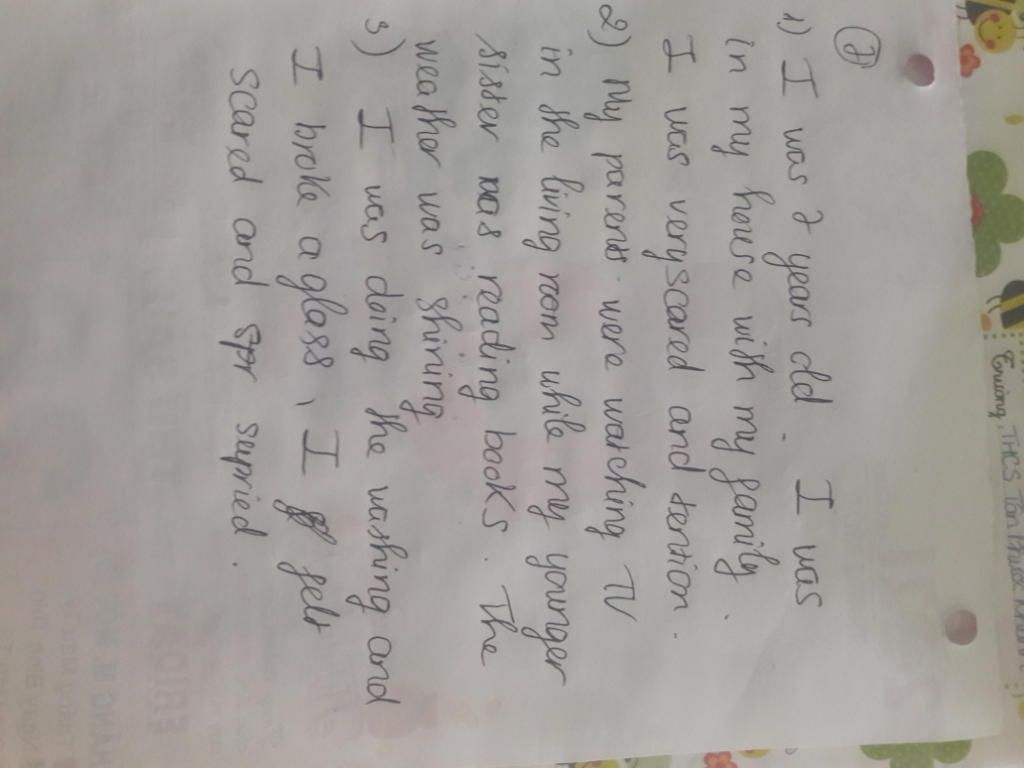 7
1) I was 7 years old. I was
in my house with my family.
I was very scared and tension.
2) My parents were watching TV
in the living room while my younger
sister was reading books. The
weather was shining
3) I was doing the washing and
I broke a glass, I felt
scared and supried.
THCS